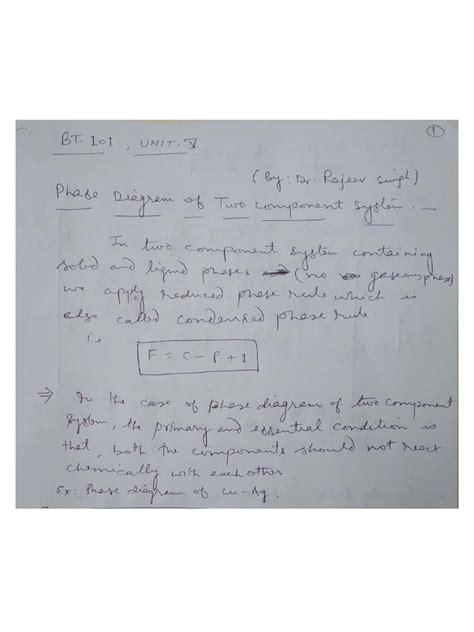 ①
BT-101, UNIT-V
(By: Dr. Rajeev Singh)
Phase Diagram of Two component system.—
In two component system containing
solid and liquid phases (no gaseous phase)
we apply reduced phase rule which is
also called condensed phase rule.
i.e
F = C - P + 1
⇒ In the case of phase diagram of two component
system, the primary and essential condition is
that, both the components should not react
chemically with each other.
Ex: Phase diagram of Cu-Ag.